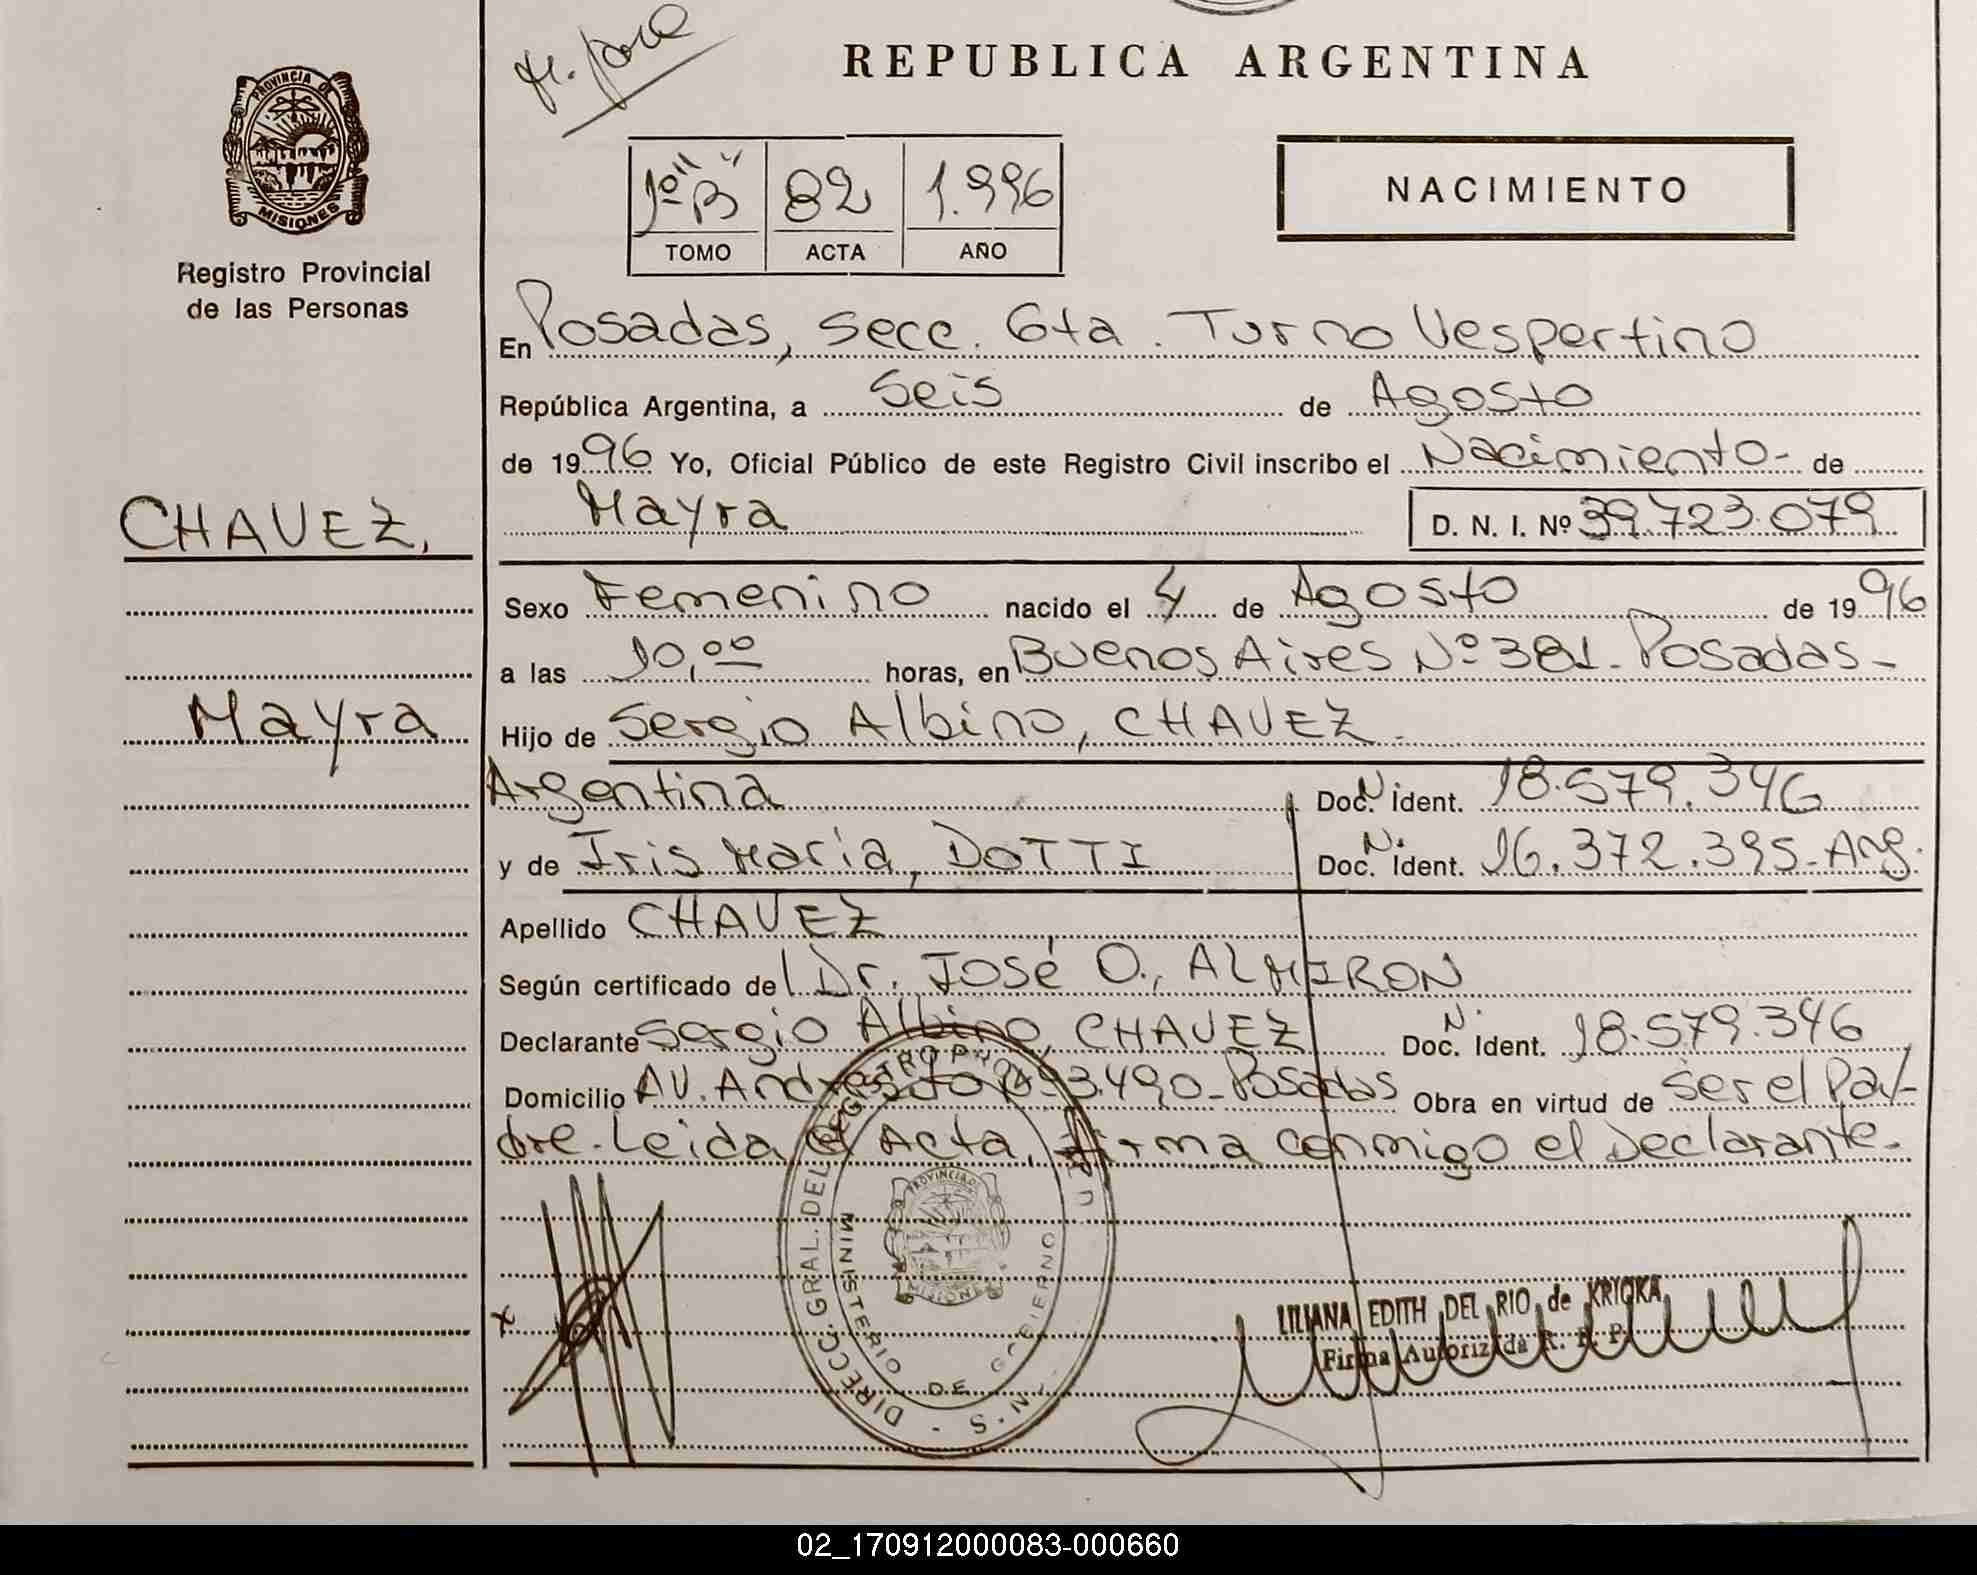 REPUBLICA ARGENTINA
PROVINCIA DE
MISIONES
Registro Provincial
de las Personas
1º "B" 82 1.996
TOMO ACTA AÑO
NACIMIENTO
En Posadas, Secc. 6ta. Turno Vespertino
República Argentina, a Seis de Agosto
de 1996 Yo, Oficial Público de este Registro Civil inscribo el Nacimiento- de
Mayra D. N. I. Nº 39.723.079
CHAVEZ,
Sexo Femenino nacido el 4 de Agosto de 1996
a las 10,00 horas, en Buenos Aires Nº 381- Posadas-
Mayra
Hijo de Sergio Albino, CHAVEZ.
Argentina Doc. N. Ident. 18.579.346
y de Iris María, DOTTI Doc. N. Ident. 16.372.395-Arg.
Apellido CHAVEZ
Según certificado del Dr. José O., ALMIRON
Declarante Sergio Albino, CHAVEZ Doc. N. Ident. 18.579.346
Domicilio AV. Nº 3.490-Posadas Obra en virtud de Ser el Pa/-
dre. Leida el Acta, firma conmigo el Declarante.
DIRECC. GRAL. DEL REGISTRO
MINISTERIO DE GOBIERNO
PROVINCIA D
MISIONES
x
LILIANA EDITH DEL RIO de
Firma Autorizada R. P. P.
02_170912000083-000660